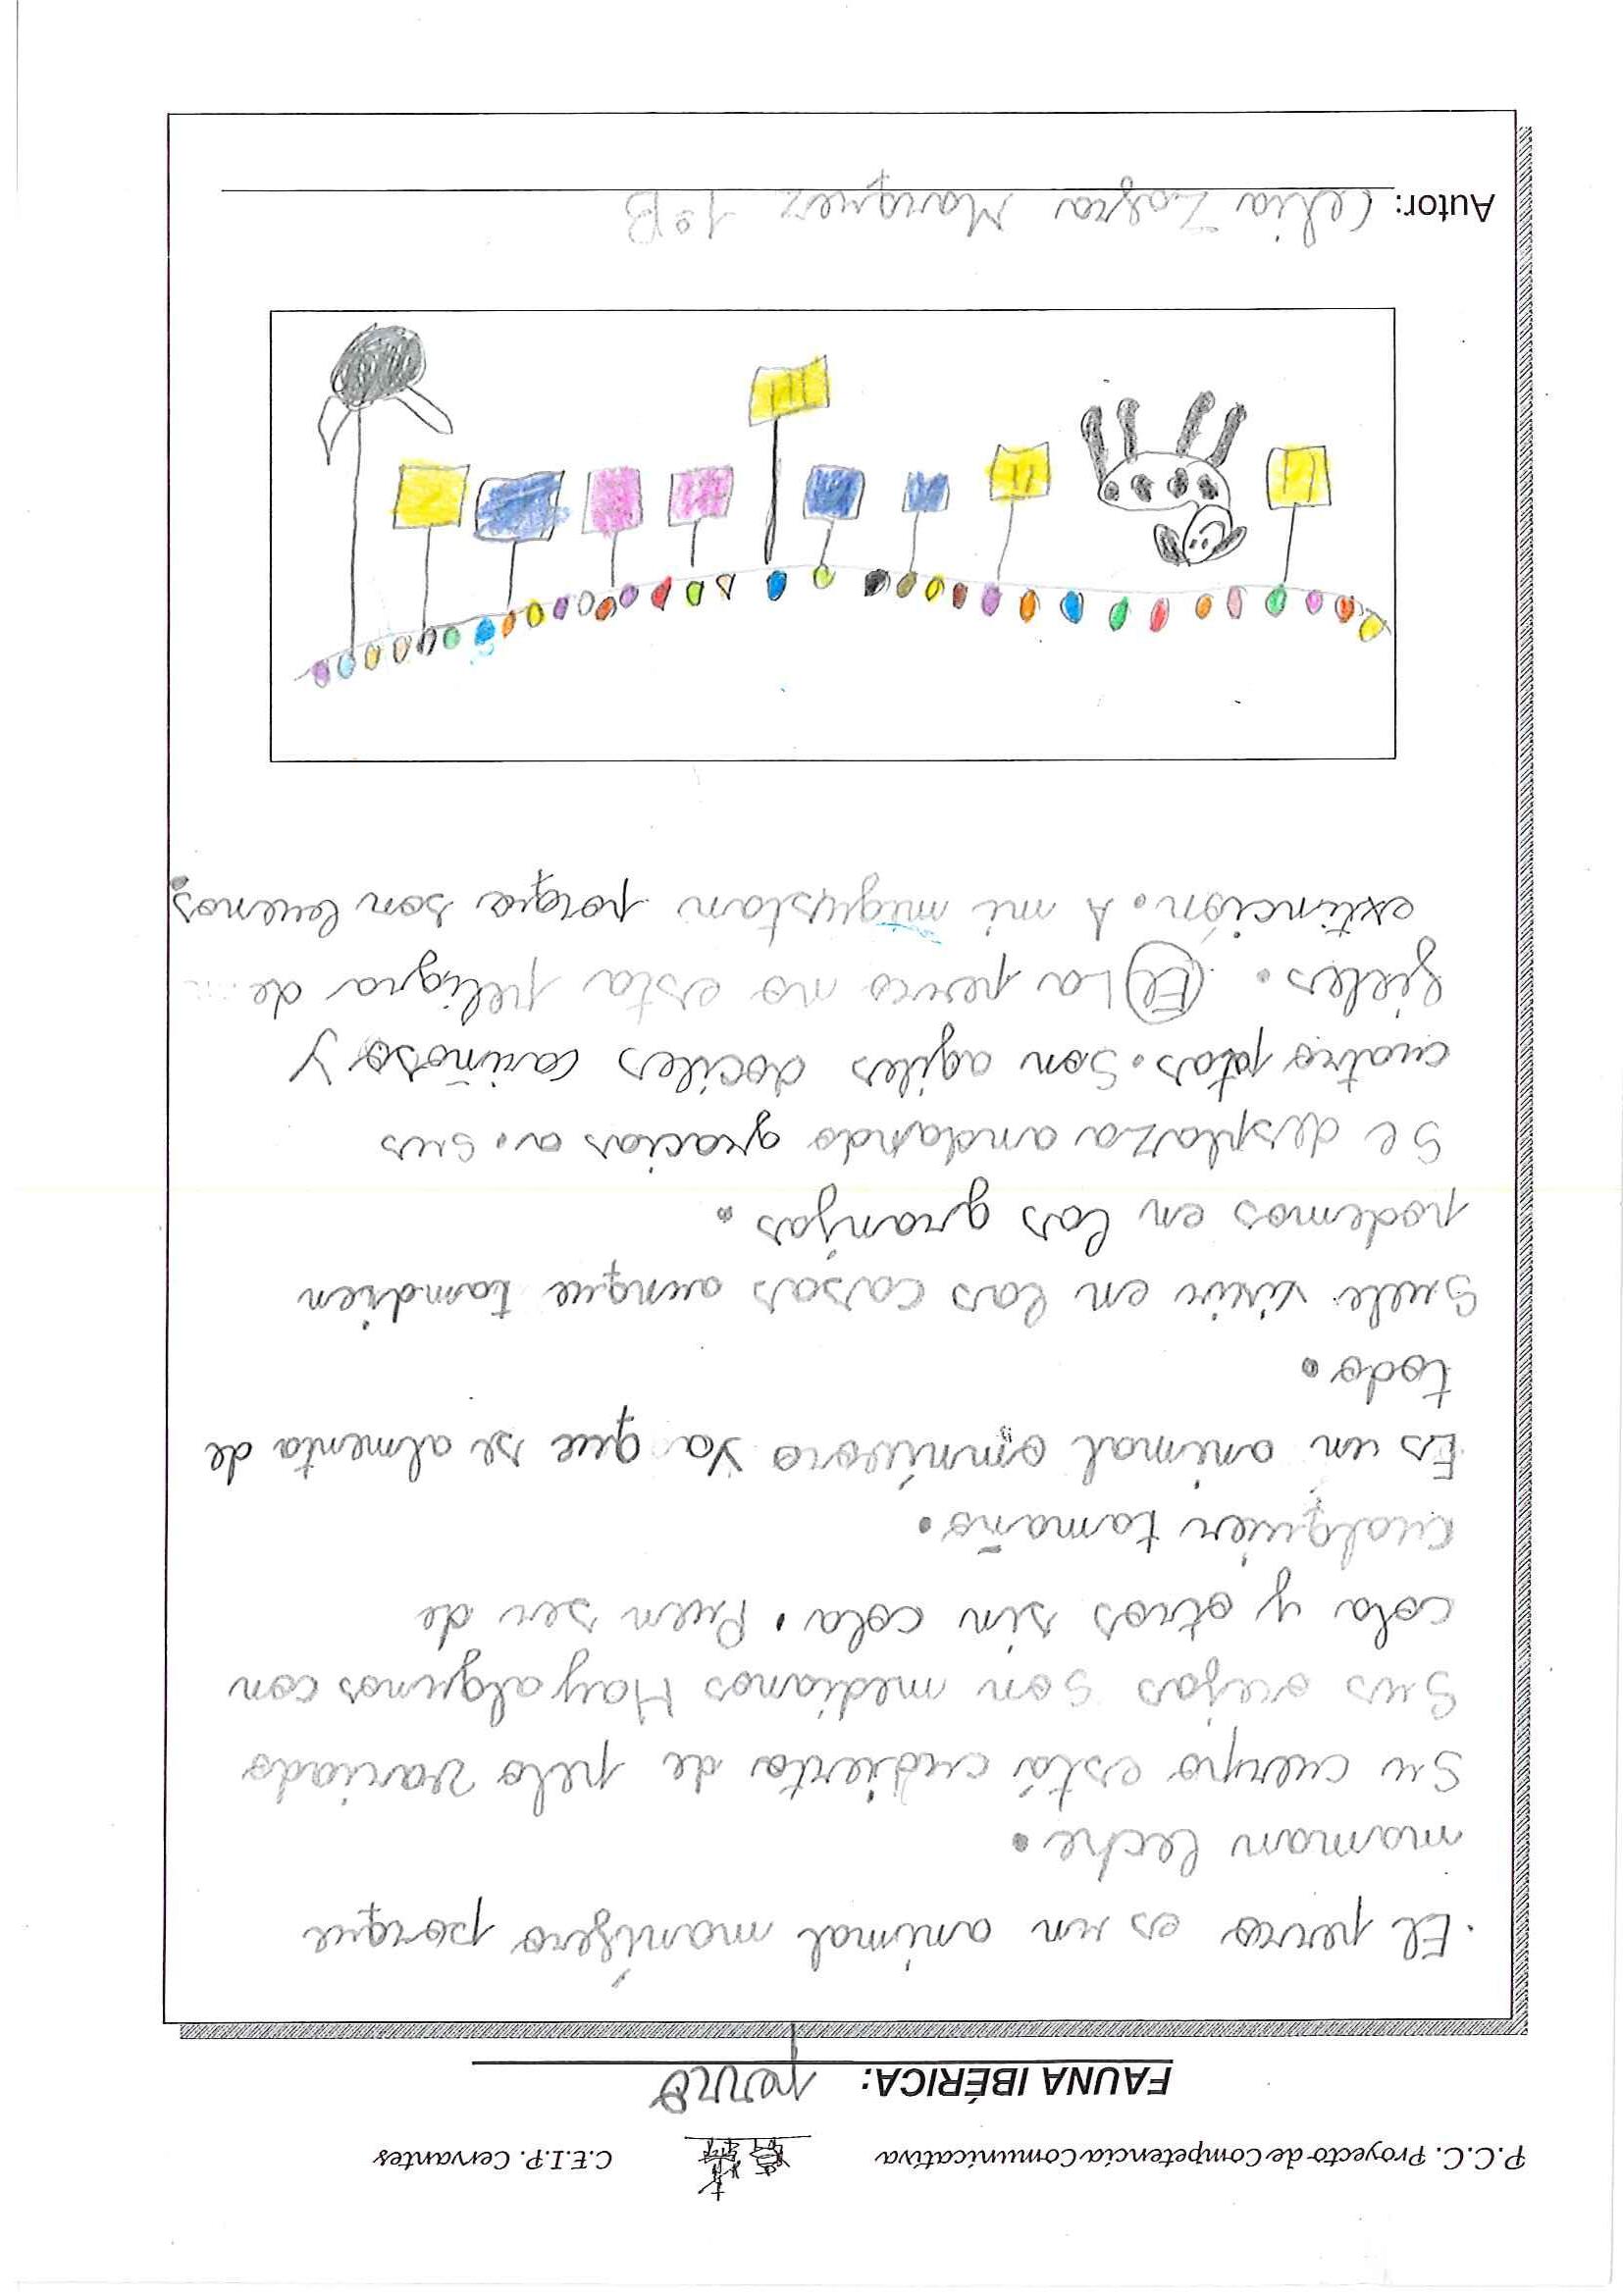 P.C.C. Proyecto de Competencia Comunicativa C.E.I.P. Cervantes
FAUNA IBÉRICA: perro
El perro es un animal mamífero porque
maman leche.
Su cuerpo está cudierto de pelo variado
Sus orejas son medianos Hay algunos con
cola y otros sin cola. Puen ser de
cualquier tamaño.
Es un animal omnívoro Ya que se almenta de
todo.
Suele vivir en las casas aunque tamdien
podemos en las granjas.
Se desplaza andando gracias a. sus
cuatro patas. Son agiles dociles cariñoso y
fieles. (El) La perro no esta peligra de
extinción. A mí migustan porque son buenos.
Autor: Celia Zafra Marquez 1º B